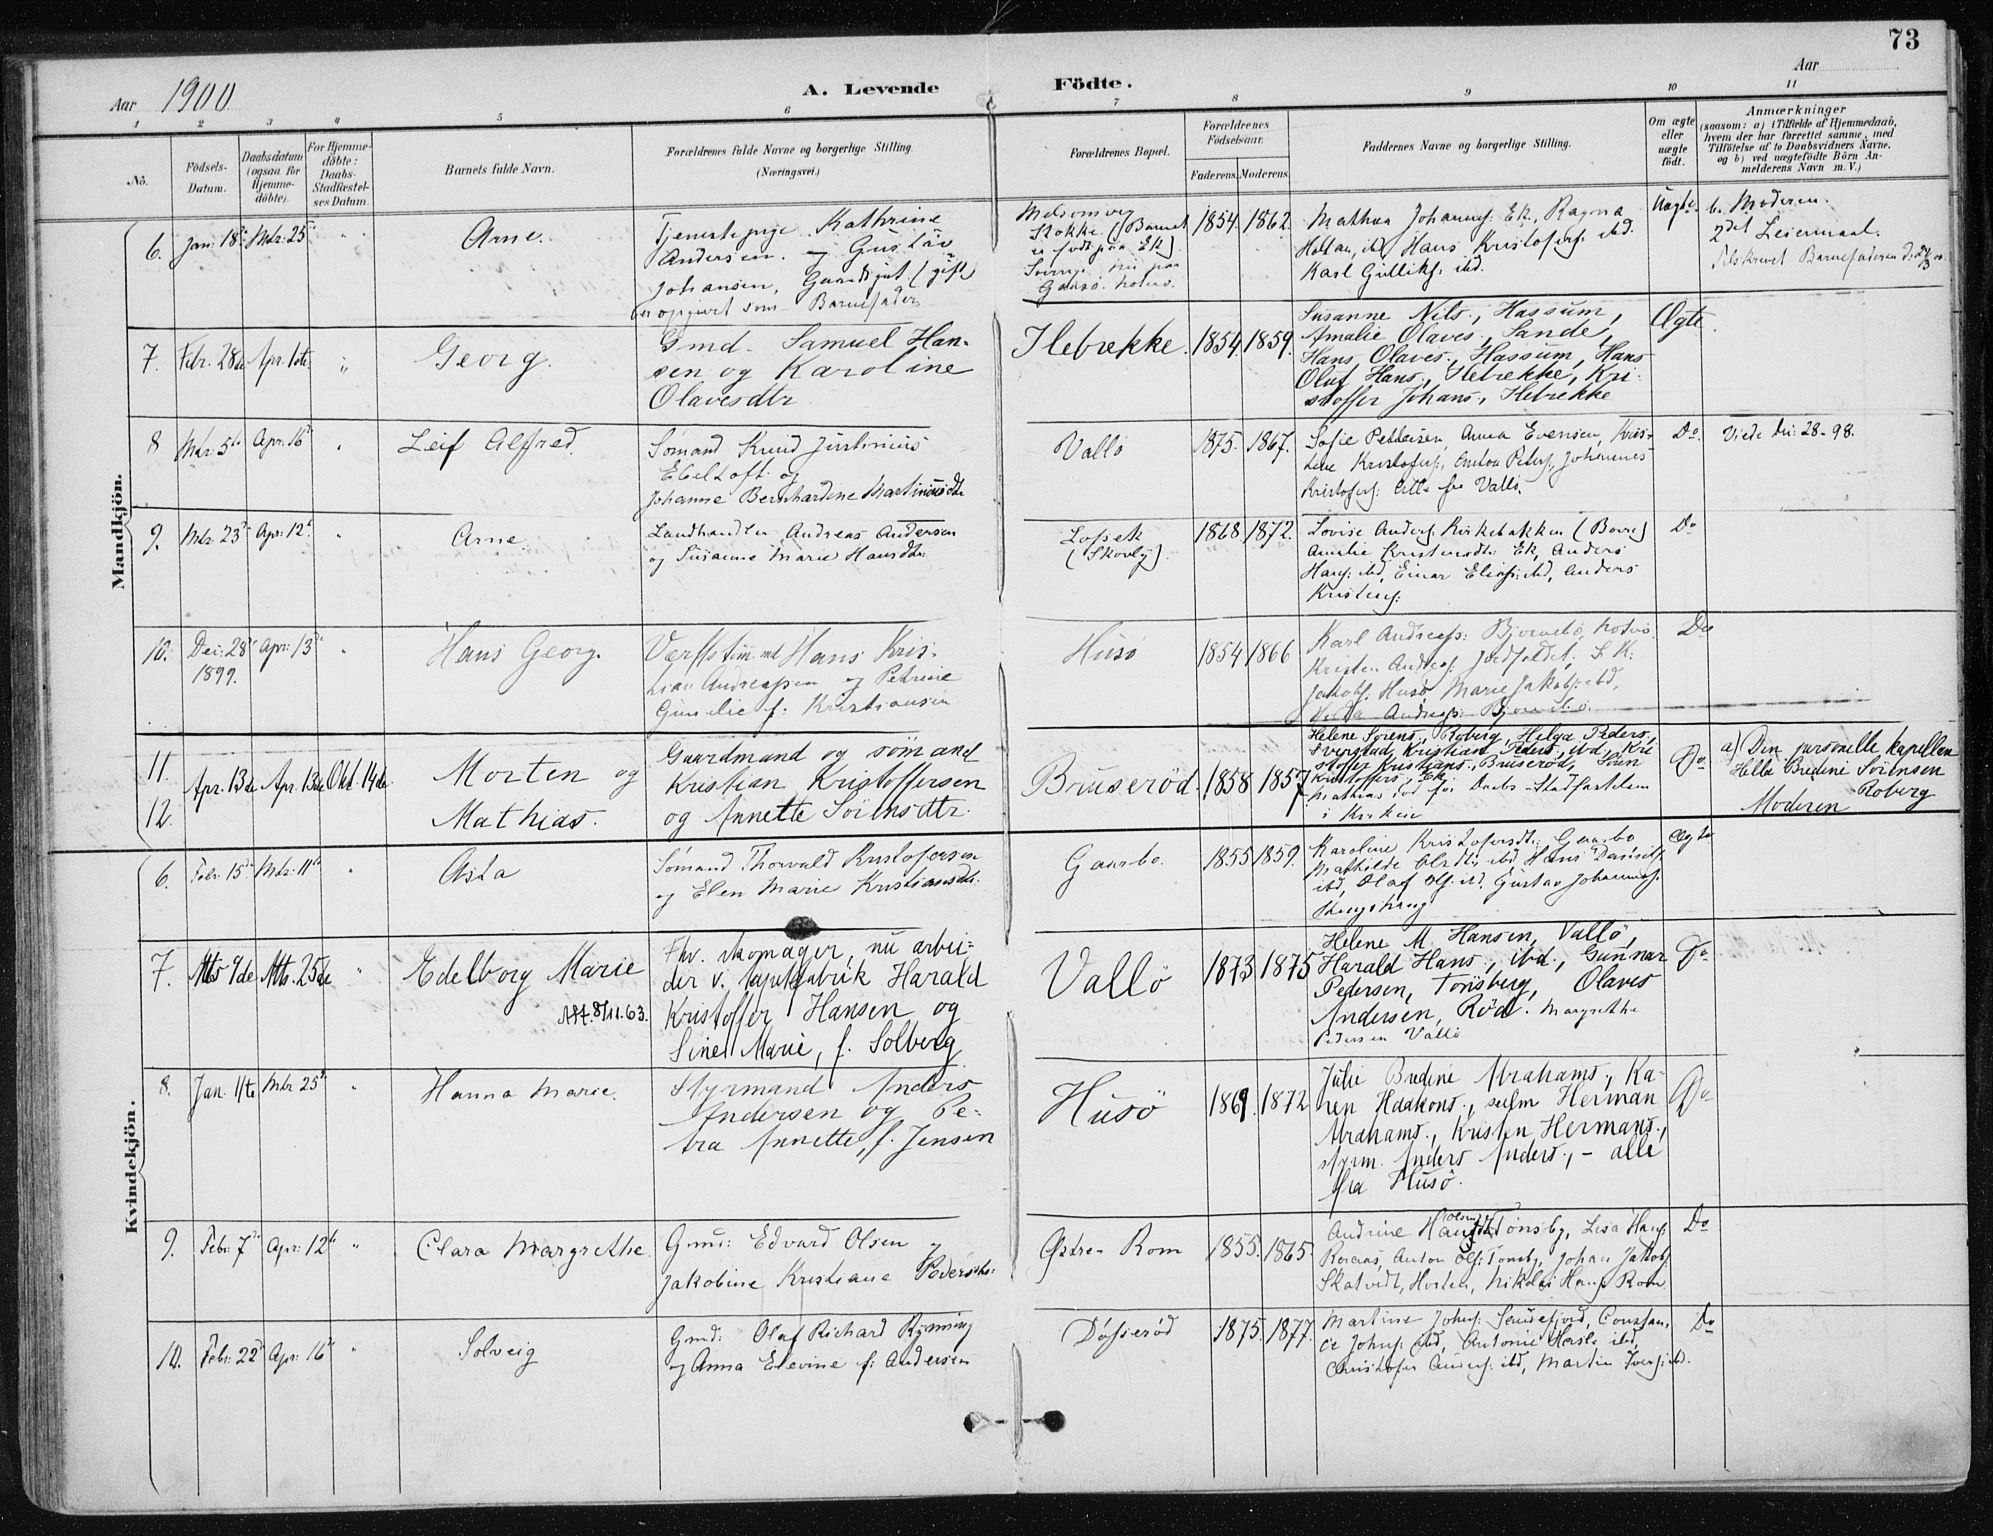 73
Aar 1900
A. Levende Födte.
Aar
1 2 3 4 5 6 7 8 9 10 11
No.
Födsels-Datum.
Daabsdatum (ogsaa for Hjemme-döbte).
For Hjemme-döbte: Daabs-Stadfæstel-ses Datum.
Barnets fulde Navn.
Forældrenes fulde Navne og borgerlige Stilling. (Næringsvei.)
Forældrenes Bopæl.
Forældrenes Födselsaar.
Faderens. Moderens.
Faddernes Navne og borgerlige Stilling.
Om ægte eller uægte födt.
Anmærkninger
(saasom: a) i Tilfælde af Hjemmedaab, hvem der har forrettet samme, med Tilföielse af to Daabsvidners Navne, og b) ved uægtefödte Börn Anmelderens Navn m. V.)
Mandkjön.
6. Jan: 18 Mdr: 25 Arne.
Tjenestepige Kathrine
Andersen og Gustav
Johansen, Gaardsgut (gift)
er opgivet som Barnefader
Melsomvig
Stokke (Barnet
er født paa Ek)
1854. 1862.
Karl Gulliks: ibd.
Uægte
b. Moderen.
2det Leiermaal.
7. Febr. 28de Apr. 1ste " Georg.
Gmd. Samuel Han-
sen og Karoline
Olavesdtr
Ilebrekke. 1854 1859.
Susanne Nils., Hassum,
Amalie Olaves., Sande,
Hans Olaves., Hassum, Hans
Oluf Hans., Ilebrekke, Kri-
stoffer Johans., Ilebrekke
Ægte.
8 Mdr: 5 Apr: 16 " Leif Alfred.
Sømand Knud Justinius
Ebeltoft og
Johanne Bernhardine Martiniusdtr
Vallø 1875. 1867.
Sofie Pettersen, Anna Evensen, Kris-
tine Kristofers:, Anton Peters:, Johannes
Kristofers: Alle fra Vallø.
Do. Viede Dec: 28-98.
9. Mdr: 23 Apr: 12 " Arne
Landhandler Andreas Andersen
og Susanne Marie Hansdtr
(Skovly). 1868 1872.
Lovise Anders: Kirkebakken (Borre)
Amalie Kristensdtr: Ek, Anders
Hans: ibd, Einar Elias: ibd, Anders
Do
10. Dec: 28 1899. Apr: 13 " Hans Georg.
Hans Kris-
tian Andreassen og Petrine
f: Kristiansen
Husø 1854 1866
Do
11. 12. Apr. 13de Apr. 13de Okt. 14de Morten og
Mathias.
Gaardmand og sømand
Kristian Kristoffersen
og Annette Sörensdtr.
Bruserød 1858 1857
Helene Sørens., Roberg, Helga Peders.,
Sverstad, Kristian Peders., ibd, Kri-
stoffer Kristians., Bruserød, Sören
Kristoffers., Ek
i Kirken
Do.
a) Den personelle kapellan
Helle Bredine Sörensen
Roberg
Moderen
Kvindekjön.
6. Febr: 15 Mdr: 11 " Asta
Sømand Thorvald Kristofersen
og Elen Marie Kristiansdtr.
Gaarbo. 1855 1859.
Karoline Kristofersdtr: Gaarbo
ibd, Olaf Ols: ibd, Gustav Johannes:
Ægte
7. Mts 9de Mts. 25de " Edelborg Marie
8/11.63.
Fhv. skomager, nu arbei-
der v. tapetfabrik Harald
Kristoffer Hansen og
Sine Marie, f. Solberg
Vallö 1873 1875
Helene M. Hansen, Vallö,
Harald Hans., ibd., Gunnar
Pedersen, Tönsberg, Olaves
Andersen, Röd. Margrethe
Petersen Vallö
Do
8. Jan. 11te Mdr 25 " Hanna Marie.
Styrmand Anders
Andersen og Pe-
tra Annette, f. Jensen
Husö 1869. 1872
Julie Bredine Abrahams., Ka-
ren Haakons., Herman
Abrahams., Kristen Hermans.,
styrm. Anders Anders., - alle
fra Husö.
Do.
9. Febr: 7 Apr: 12 " Clara Margrethe.
Gmd: Edvard Olsen og
Jakobine Kristiane Pedersdtr:
Østre Rom 1855. 1865.
Andrine Tønsbg, Lisa Hans:
Anton Ols: Tønsbg, Johan Jakobs:
Skatvedt, Horten, Nikolai Hans: Rom
Do
10. Febr: 22 Apr: 16 " Solveig
Gmd: Olaf Richard Rynning
og Anna Elevine f: Andersen
1875. 1877.
Martine Johns: Sandefjord,
Johns: ibd, Antonie Hasle ibd,
Christofer Anders: ibd, Martin Ivers: ibd.
Do